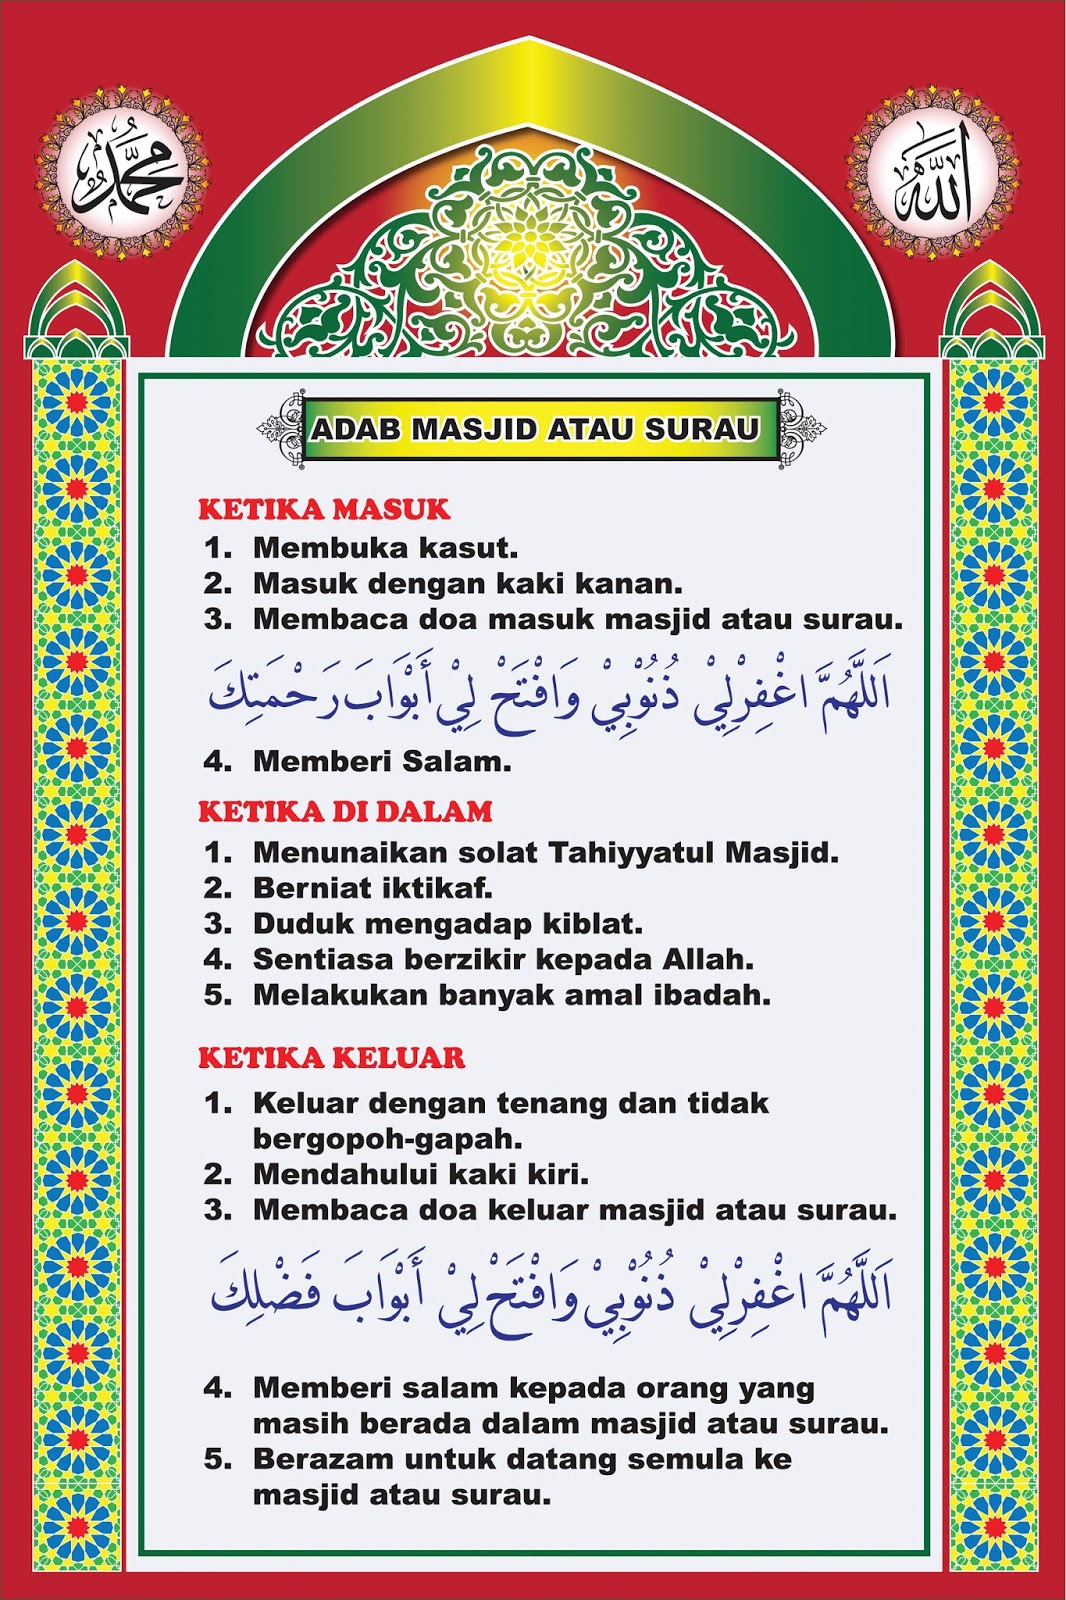 محمد
الله
ADAB MASJID ATAU SURAU
KETIKA MASUK
1. Membuka kasut.
2. Masuk dengan kaki kanan.
3. Membaca doa masuk masjid atau surau.
اَللَّهُمَّ اغْفِرْلِيْ ذُنُوْبِيْ وَافْتَحْ لِيْ أَبْوَابَ رَحْمَتِكَ
4. Memberi Salam.
KETIKA DI DALAM
1. Menunaikan solat Tahiyyatul Masjid.
2. Berniat iktikaf.
3. Duduk mengadap kiblat.
4. Sentiasa berzikir kepada Allah.
5. Melakukan banyak amal ibadah.
KETIKA KELUAR
1. Keluar dengan tenang dan tidak
bergopoh-gapah.
2. Mendahului kaki kiri.
3. Membaca doa keluar masjid atau surau.
اَللَّهُمَّ اغْفِرْلِيْ ذُنُوْبِيْ وَافْتَحْ لِيْ أَبْوَابَ فَضْلِكَ
4. Memberi salam kepada orang yang
masih berada dalam masjid atau surau.
5. Berazam untuk datang semula ke
masjid atau surau.